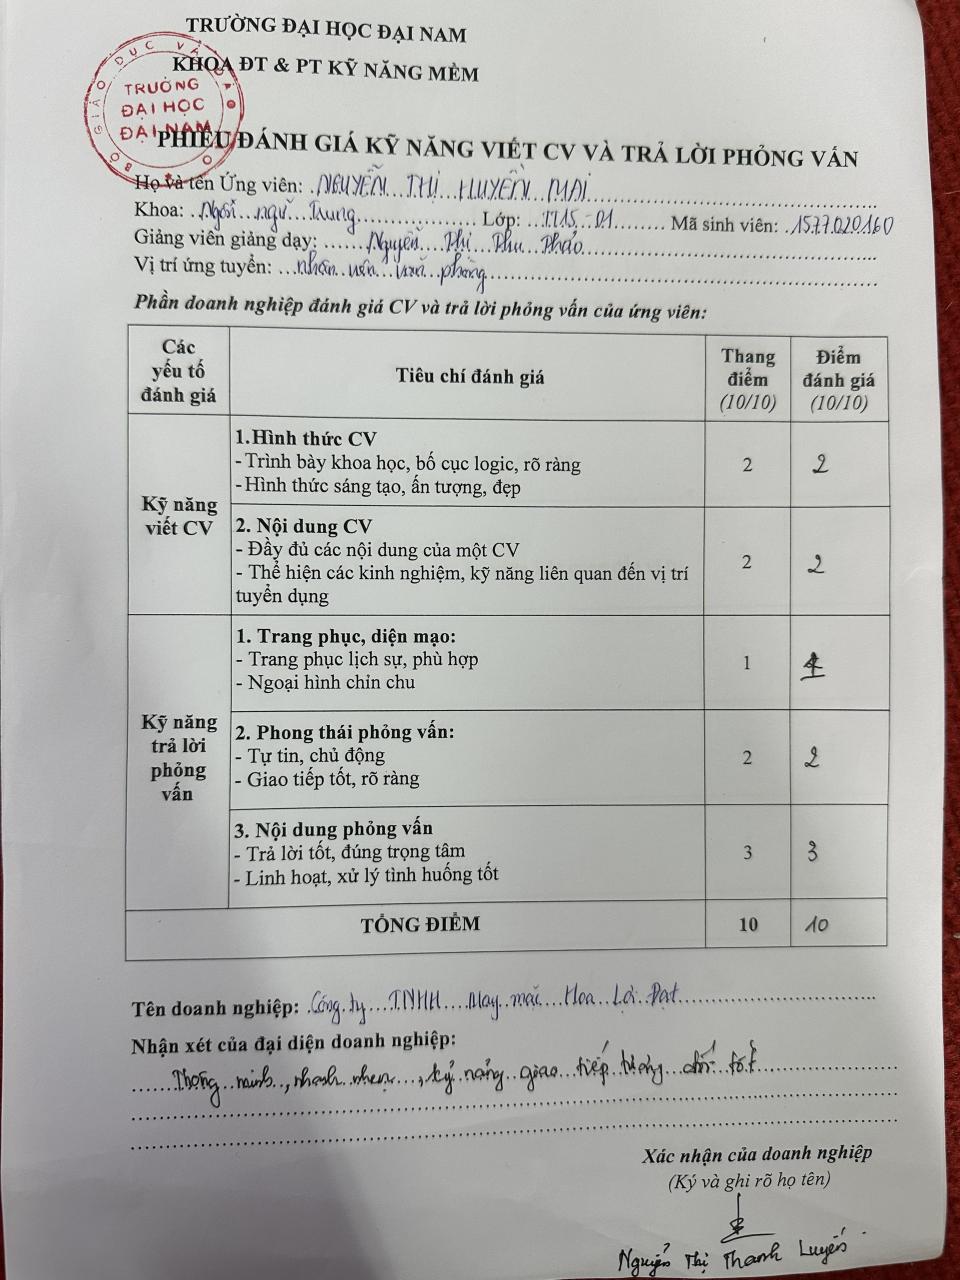 TRƯỜNG ĐẠI HỌC ĐẠI NAM
KHOA ĐT & PT KỸ NĂNG MỀM
BỘ GIÁO DỤC VÀ ĐÀO
TRƯỜNG
ĐẠI HỌC
ĐẠI NAM
PHIẾU ĐÁNH GIÁ KỸ NĂNG VIẾT CV VÀ TRẢ LỜI PHỎNG VẤN
Họ và tên Ứng viên: NGUYỄN THỊ HUYỀN MAI
Khoa: Ngôn ngữ Trung Lớp: TT15-01 Mã sinh viên: 1577020160
Giảng viên giảng dạy: Nguyễn Thị Thu Thảo
Vị trí ứng tuyển: nhân viên văn phòng
Phần doanh nghiệp đánh giá CV và trả lời phỏng vấn của ứng viên:
Các yếu tố đánh giá
Tiêu chí đánh giá
Thang điểm (10/10)
Điểm đánh giá (10/10)
Kỹ năng viết CV
1.Hình thức CV
- Trình bày khoa học, bố cục logic, rõ ràng
- Hình thức sáng tạo, ấn tượng, đẹp
2
2
2. Nội dung CV
- Đầy đủ các nội dung của một CV
- Thể hiện các kinh nghiệm, kỹ năng liên quan đến vị trí
tuyển dụng
2
2
Kỹ năng trả lời phỏng vấn
1. Trang phục, diện mạo:
- Trang phục lịch sự, phù hợp
- Ngoại hình chỉn chu
1
1
2. Phong thái phỏng vấn:
- Tự tin, chủ động
- Giao tiếp tốt, rõ ràng
2
2
3. Nội dung phỏng vấn
- Trả lời tốt, đúng trọng tâm
- Linh hoạt, xử lý tình huống tốt
3
3
TỔNG ĐIỂM 10 10
Tên doanh nghiệp: Công ty TNHH May mặc Hoa Lợi Đạt
Nhận xét của đại diện doanh nghiệp:
Thông minh, nhanh nhẹn, kỹ năng giao tiếp tương đối tốt
Xác nhận của doanh nghiệp
(Ký và ghi rõ họ tên)
Nguyễn Thị Thanh Luyến